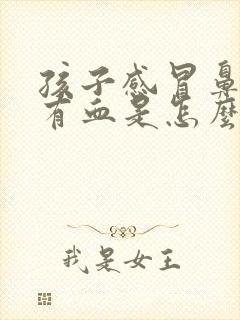 孩子感冒鼻
有血是怎麼
我是女王